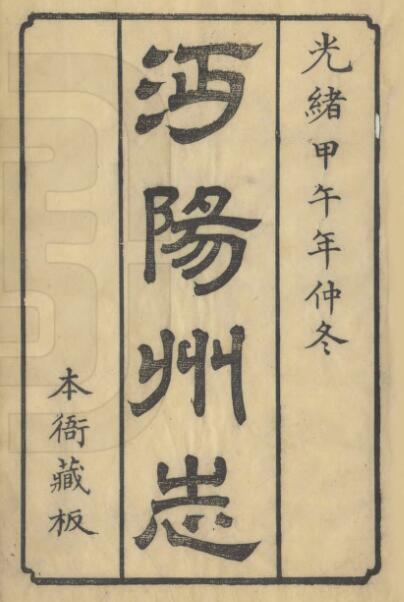 光緒甲午年仲冬
沔陽州志
本衙藏板